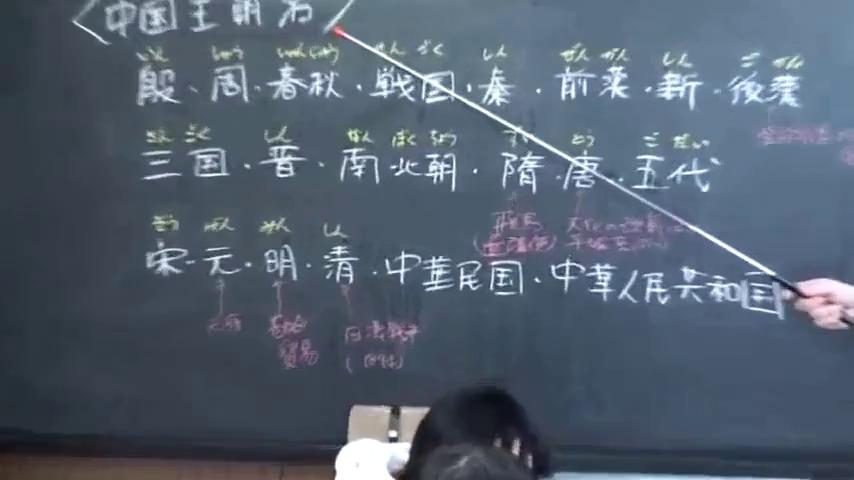 〈中国王朝名〉
いん しゅう しゅんじゅう せんごく しん ぜんかん しん ごかん
殷・周・春秋・戦国・秦・前漢・新・後漢
さんごく しん なんぼくちょう ずい とう ごだい
三国・晋・南北朝・隋・唐・五代
そう げん みん しん
宋・元・明・清・中華民国・中華人民共和国
元寇
貿易
日清戦争